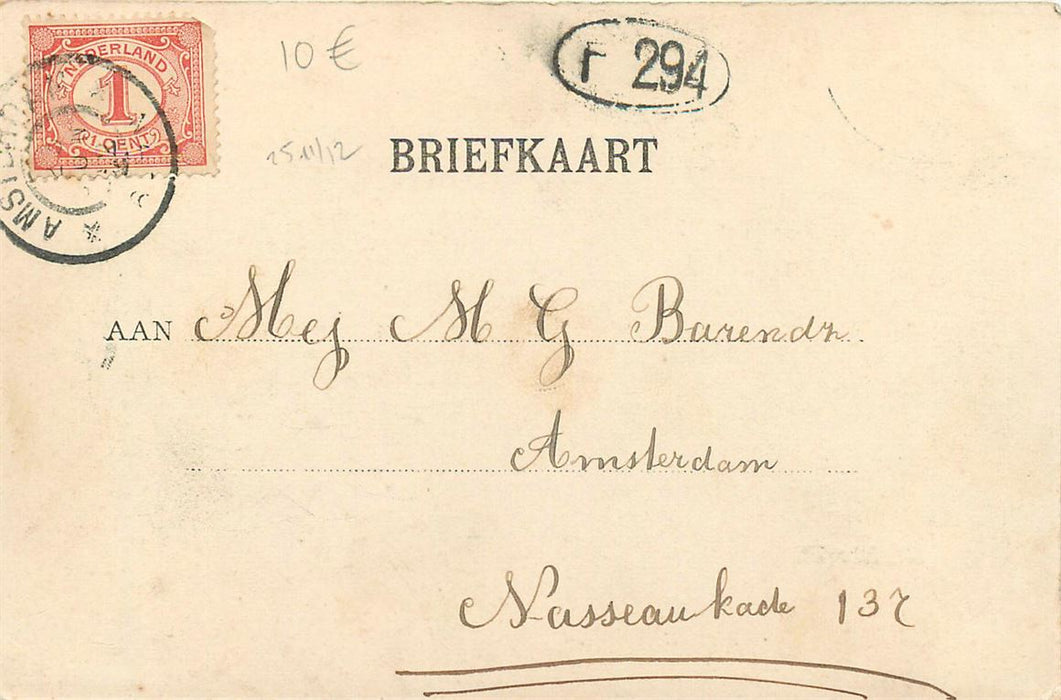 NEDERLAND
1
1 CENT
10 €
F 294
25.11/12
BRIEFKAART
AMSTERDAM
AAN Mej M G Barendz
Amsterdam
Nassaukade 137